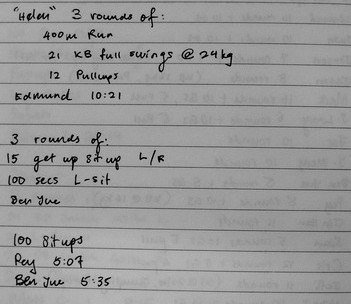 "Helen" 3 rounds of:
400m Run
21 KB full swings @ 24kg
12 Pullups
Edmund 10:21
3 rounds of:
15 get up sit up L/R
100 secs L-sit
Ben Jue
100 Situps
Rey 5:07
Ben Jue 5:35